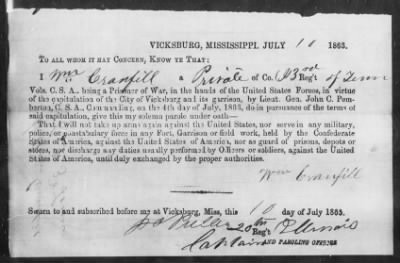 VICKSBURG, MISSISSIPPI, JULY 10 1863.
TO ALL WHOM IT MAY CONCERN, KNOW YE THAT:
I Wm Cranfill a Private of Co. 43rd Reg't of Tenn
Vols. C. S. A., being a Prisoner of War, in the hands of the United States Forces, in virtue
of the capitulation of the City of Vicksburg and its garrison, by Lieut. Gen. John C. Pem-
berton, C. S. A., Commanding, on the 4th day of July, 1863, do in pursuance of the terms of
said capitulation, give this my solemn parole under oath—
That I will not take up arms again against the United States, nor serve in any military,
police, or constabulary force in any Fort, Garrison or field work, held by the Confederate
States of America, against the United States of America, nor as guard of prisons, depots or
stores, nor discharge any duties usually performed by Officers or soldiers, against the United
States of America, until duly exchanged by the proper authorities.
Wm Cranfill
Sworn to and subscribed before me at Vicksburg, Miss, this 10 day of July 1863.
20th Reg't Illinois
Captain AND PAROLING OFFICER